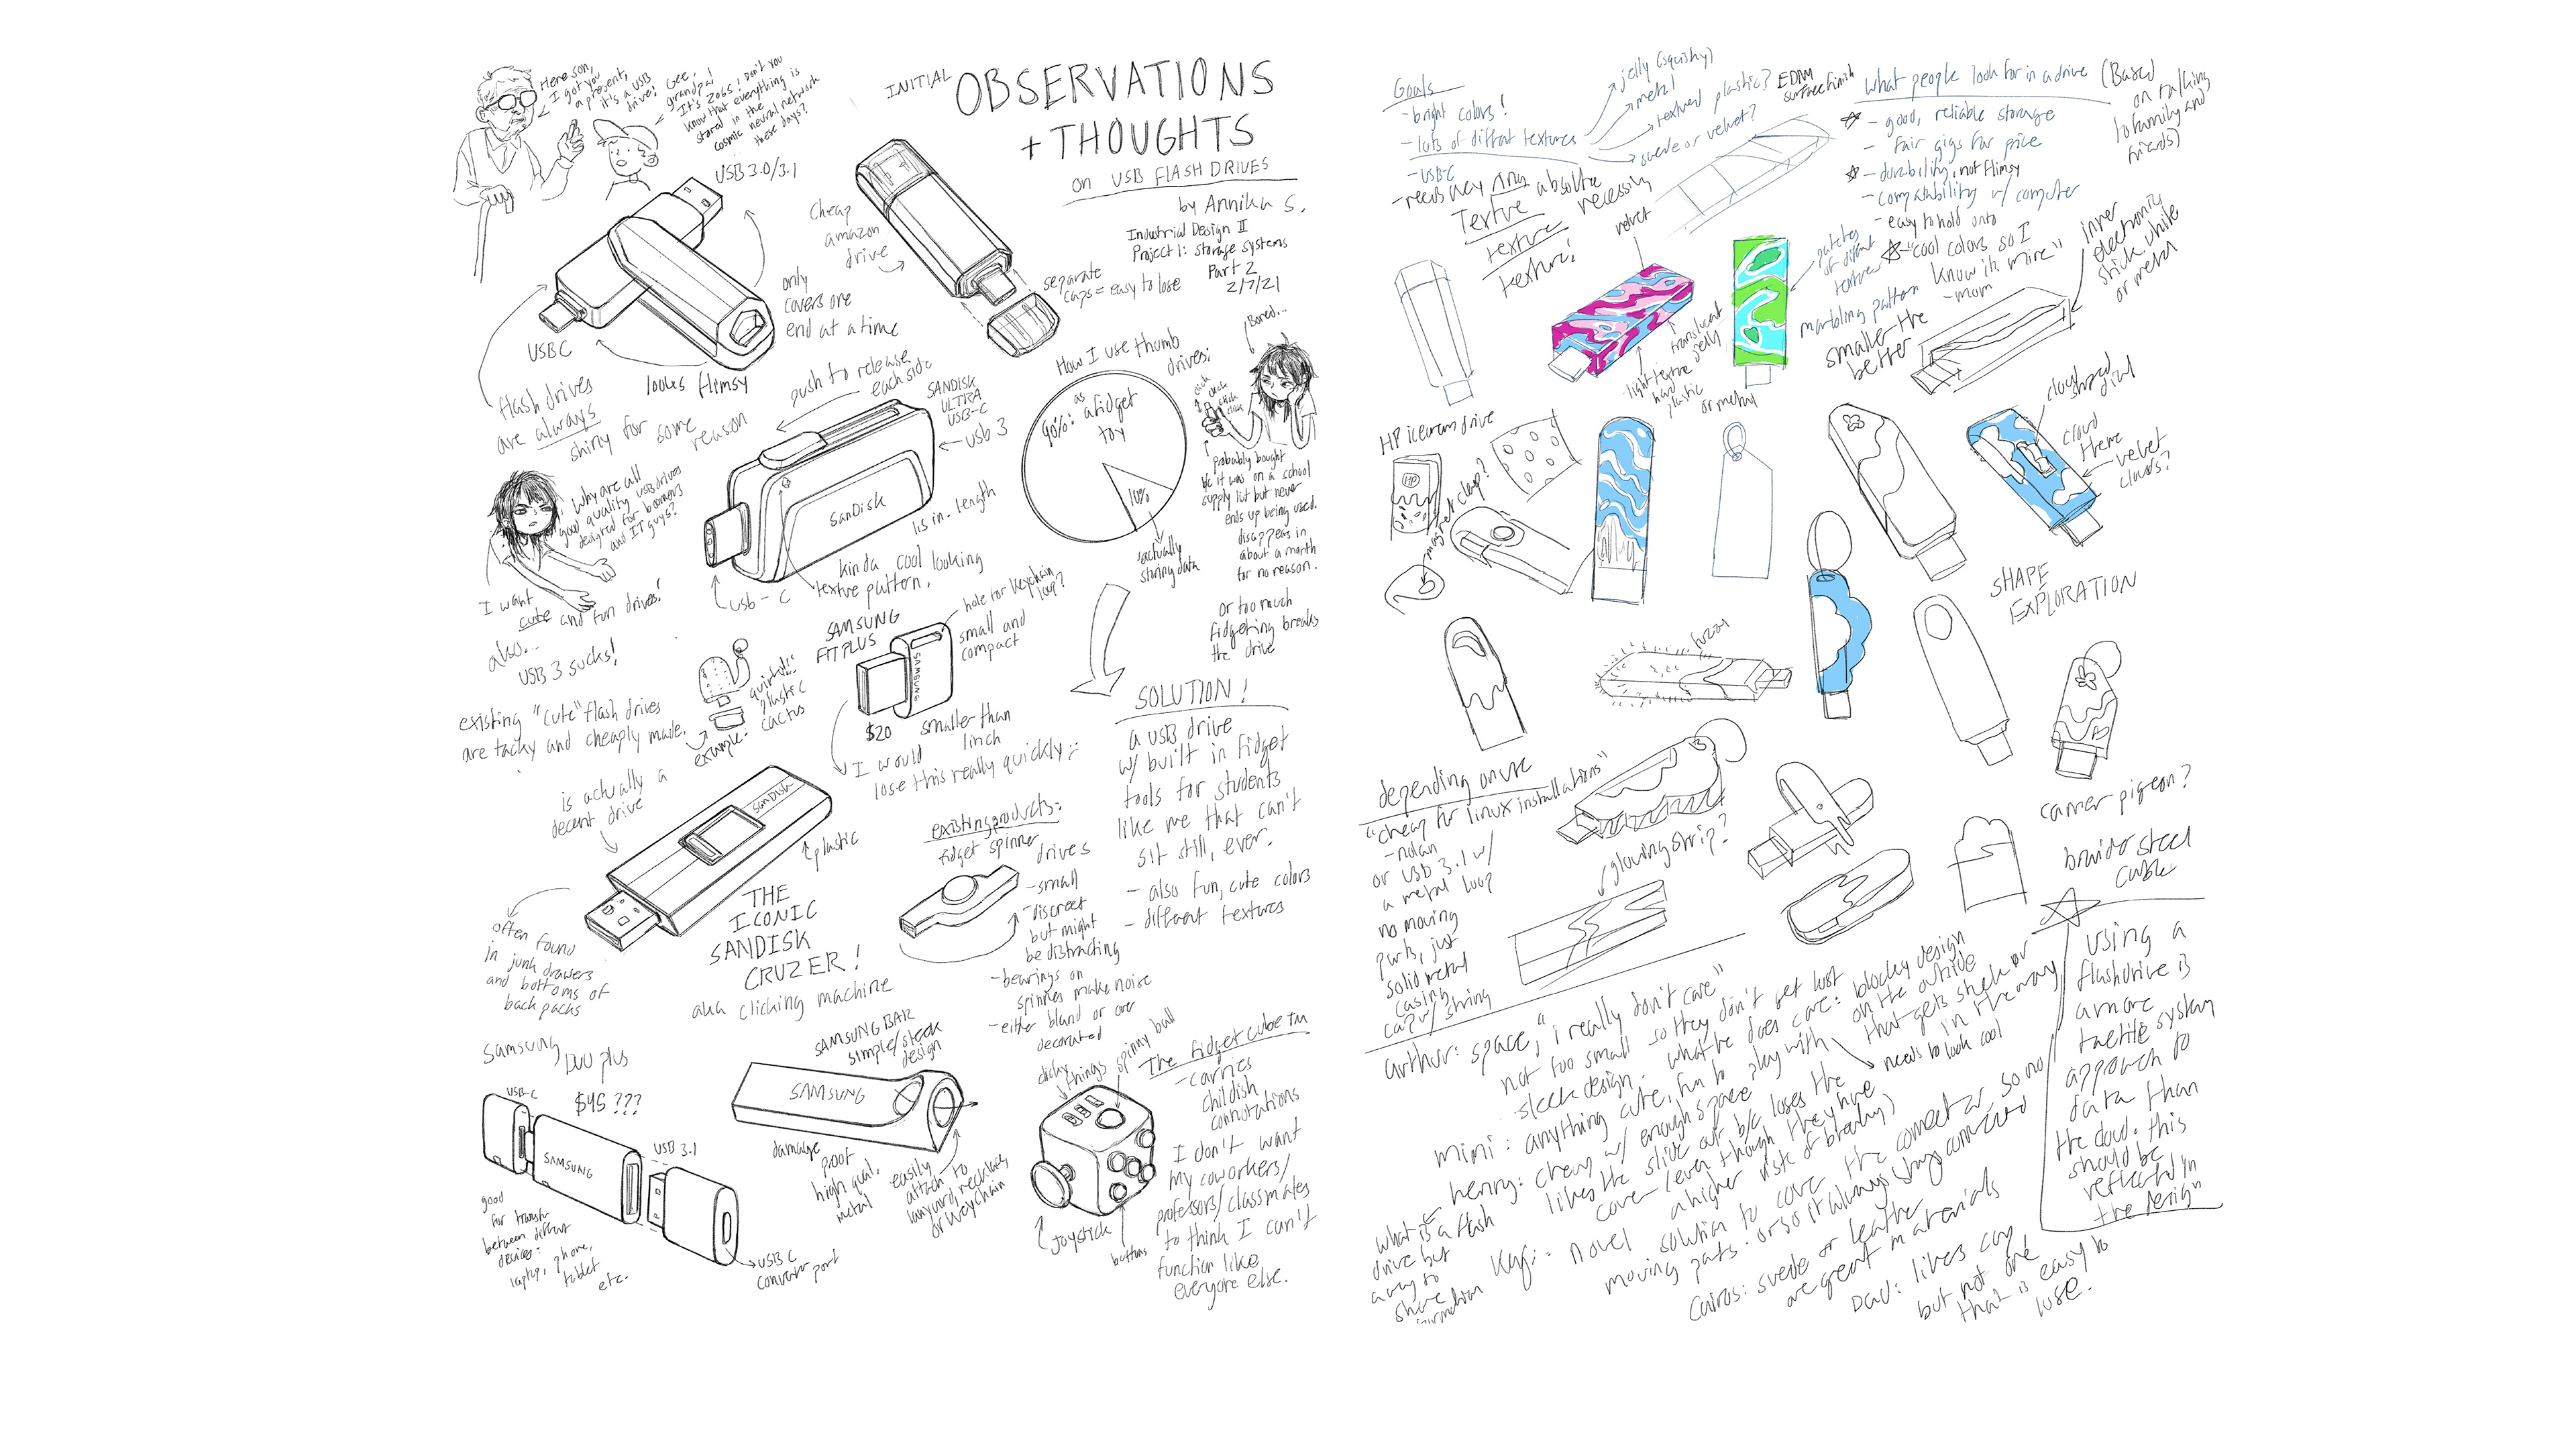 Here son,
I got you
a present,
it's a USB
drive!
Gee,
grandpa!
It's 2065! Don't you
know that everything is
stored in the
cosmic neural network
these days?
INITIAL
OBSERVATIONS
+ THOUGHTS
on USB FLASH DRIVES
by Annika S.
Industrial Design II
Project 1: Storage systems
Part 2
2/7/21
USB 3.0/3.1
only
covers one
end at a time
USBC
looks flimsy
flash drives
are always
shiny for some
reason
Cheap
amazon
drive
separate
caps = easy to lose
push to release
each side
SANDISK
ULTRA
USB-C
usb 3
SanDisk
1.5 in. length
kinda cool looking
texture pattern.
usb-c
How I use thumb
drives:
90%: as
a fidget
toy
10%
actually
storing data
Bored...
click
click
click
click
probably bought
b/c it was on a school
supply list but never
ends up being used.
disappears in
about a month
for no reason.
or too much
fidgeting breaks
the drive
Why are all
good quality usb drives
designed for boomers
and IT guys?
I want
cute and fun drives!
also...
USB 3 sucks!
existing "cute" flash drives
are tacky and cheaply made.
example:
quirky!!
plastic
cactus
SAMSUNG
FIT PLUS
hole for keychain
loop?
small and
compact
SAMSUNG
$20
smaller than
1 inch
I would
lose this really quickly :
SOLUTION!
a USB drive
w/ built in fidget
tools for students
like me that can't
sit still, ever.
- also fun, cute colors
- different textures
is actually a
decent drive
SanDisk
plastic
THE
ICONIC
SANDISK
CRUZER!
aka clicking machine
often found
in junk drawers
and bottoms of
back packs
existing products:
fidget spinner
drives
- small
- discreet
but might
be distracting
- bearings on
spinners make noise
- either bland or over
decorated
Samsung
Duo plus
$45 ???
USB-C
SAMSUNG
USB 3.1
good
for transfer
between different
devices:
laptop, phone,
tablet
etc.
USB C
converter port
SAMSUNG BAR
simple/sleek
design
SAMSUNG
damage
proof
high qual.
metal
easily
attach to
lanyard, necklace,
or keychain
clicky
things
spinny ball
The Fidget Cube TM
- carries
childish
connotations
I don't want
my coworkers/
professors/classmates
to think I can't
function like
everyone else.
joystick
buttons
Goals
- bright colors!
- lots of diffrent textures
- USB-C
- needs key ring
jelly (squishy)
metal
textured plastic?
EDM
surface finish
suede or velvet?
absolute
necessity
Texture
texture
texture!
What people look for in a drive (Based
on talking
to family and
friends)
- good, reliable storage
- fair gigs for price
- durability, not flimsy
- compatability w/ computer
- easy to hold onto
- "cool colors so I
know its mine"
- mom
velvet
patches
of diffrent
textures
marbling pattern
translucent
jelly
light texture
hard
plastic
or metal
smaller the
better
inner
electronic
stick, white
or metal
HP icecream drive
HP
magnet clasp?
cloud
shaped
dial
cloud
theme
velvet
clouds?
SHAPE
EXPLORATION
fuzzy
depending on use
"cheap for linux installations"
- nolan
or USB 3.1 w/
a metal loop
no moving
parts, just
solid metal
casing
cap w/ string
glowing strip?
carrier pigeon?
braided steel
cable
arthur: space, "i really don't care"
not too small so they don't get lost
sleek design. what he does care: blocky design
on the outside
that gets stuck or
in the way
needs to look cool
mimi: anything cute, fun to
play with
henry: cheap w/ enough space
likes the slide out b/c loses the
cover (even though they have
a higher risk of breaking)
Kyri: novel solution to cover the connector, so no
moving parts. or so it always stays connected
Cairos: suede or leather
are great materials
Dad: likes cap,
but not one
that is easy to
lose.
what is a flash
drive but
a way to
share
information
using a
flashdrive is
a more
tactile system
approach to
data than
the cloud. this
should be
reflected in
the design